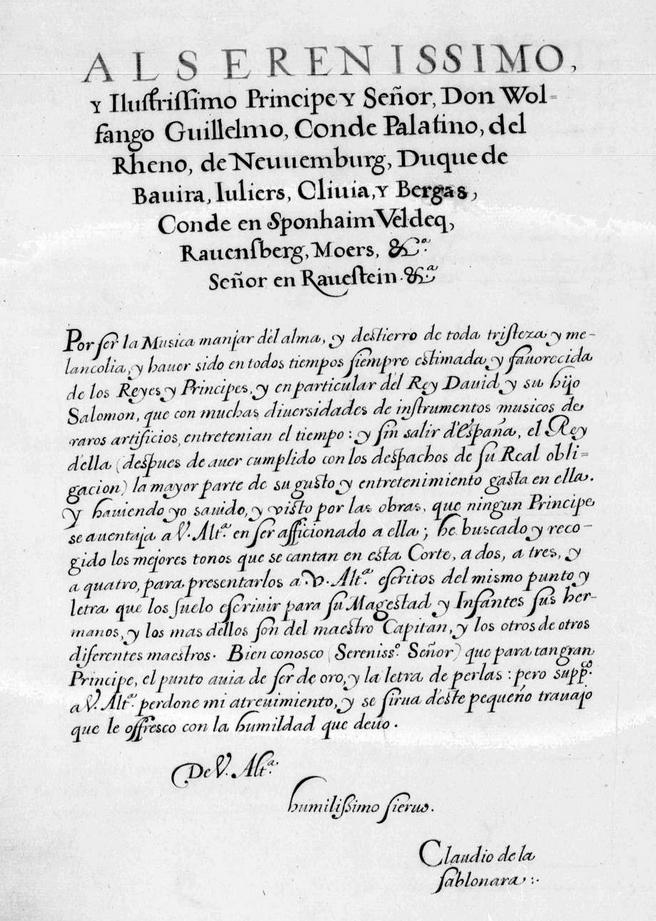 AL SERENISSIMO,
Y Ilustrissimo Principe Y Señor, Don Wol-
fango Guillelmo, Conde Palatino, del
Rheno, de Neuuemburg, Duque de
Bauira, Iuliers, Cliuia, Y Bergas,
Conde en Sponhaim Veldeq,
Rauensberg, Moers, &cª.
Señor en Rauestein. &ª.
Por ser la Musica manjar del alma, y destierro de toda tristeza y me-
lancolia, y hauer sido en todos tiempos siempre estimada y fauorecida
de los Reyes y Principes, y en particular del Rey Dauid y su hijo
Salomon, que con muchas diuersidades de instrumentos musicos de
raros artificios, entretenian el tiempo: y sin salir d'España, el Rey
della (despues de auer cumplido con los despachos de su Real obli-
gacion) la mayor parte de su gusto y entretenimiento gasta en ella.
Y hauiendo yo sauido, y visto por las obras, que ningun Principe
se auentaja a V. Altª. en ser afficionado a ella; he buscado y reco-
gido los mejores tonos que se cantan en esta Corte, a dos, a tres, y
a quatro, para presentarlos a V. Altª. escritos del mismo punto y
letra que los suelo escriuir para su Magestad y Infantes sus her-
manos, y los mas dellos son del maestro Capitan, y los otros de otros
diferentes maestros. Bien conosco (Sereniss.º Señor) que para tan gran
Principe, el punto auia de ser de oro, y la letra de perlas: pero supp.ᶜᵒ
a V. Altª. perdone mi atreuimiento, y se sirua d'este pequeño trauajo
que le offresco con la humildad que deuo.
De V. Altª.
humilissimo sieruo.
Claudio de la
Sablonara :.